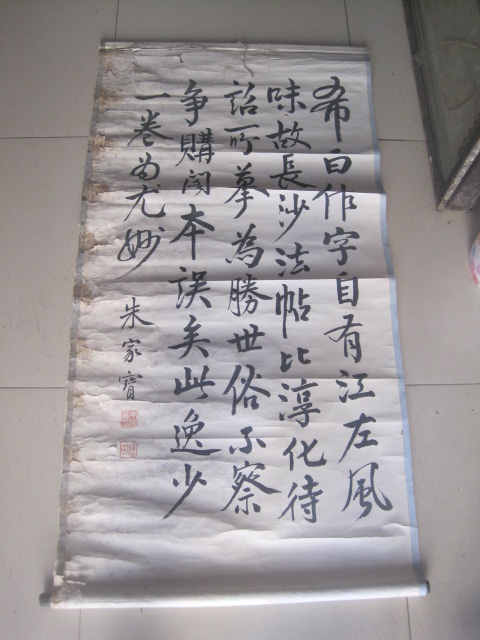 希白作字自有江左風
味故長沙法帖比淳化待
詔所摹為勝世俗不察
争購閣本誤矣此逸少
一卷為尤妙
朱家寶